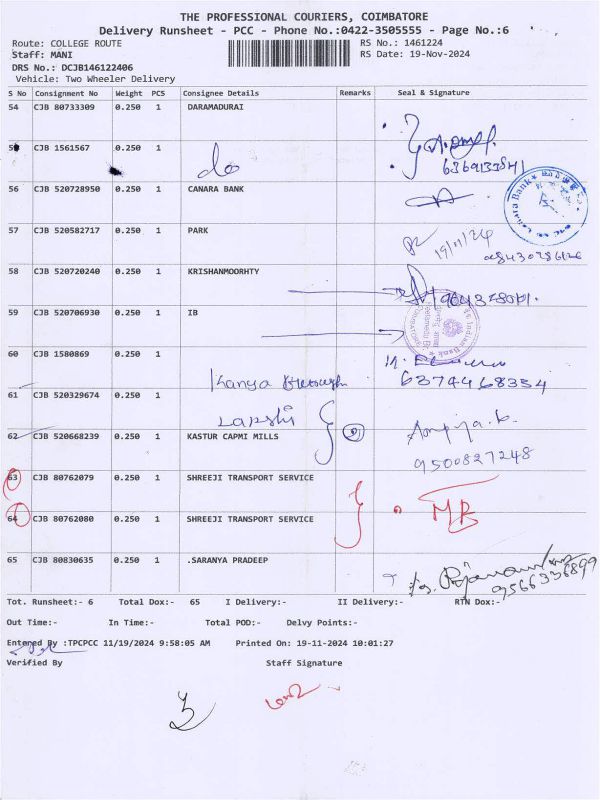 THE PROFESSIONAL COURIERS, COIMBATORE
Delivery Runsheet - PCC - Phone No.:0422-3505555 - Page No.:6
Route: COLLEGE ROUTE RS No.: 1461224
Staff: MANI RS Date: 19-Nov-2024
DRS No.: DCJB146122406
Vehicle: Two Wheeler Delivery
S No Consignment No Weight PCS Consignee Details Remarks Seal & Signature
54 CJB 80733309 0.250 1 DARAMADURAI
55 CJB 1561567 0.250 1
do
56 CJB 520728950 0.250 1 CANARA BANK
Canara Bank
57 CJB 520582717 0.250 1 PARK
19/11/24
58 CJB 520720240 0.250 1 KRISHANMOORHTY
59 CJB 520706930 0.250 1 IB
Indian Bank
60 CJB 1580869 0.250 1
Kanya
6374468354
61 CJB 520329674 0.250 1
62 CJB 520668239 0.250 1 KASTUR CAPMI MILLS
9500827248
63 CJB 80762079 0.250 1 SHREEJI TRANSPORT SERVICE
64 CJB 80762080 0.250 1 SHREEJI TRANSPORT SERVICE
65 CJB 80830635 0.250 1 .SARANYA PRADEEP
9566336899
Tot. Runsheet:- 6 Total Dox:- 65 I Delivery:- II Delivery:- RTN Dox:-
Out Time:- In Time:- Total POD:- Delvy Points:-
Entered By :TPCPCC 11/19/2024 9:58:05 AM Printed On: 19-11-2024 10:01:27
Verified By Staff Signature